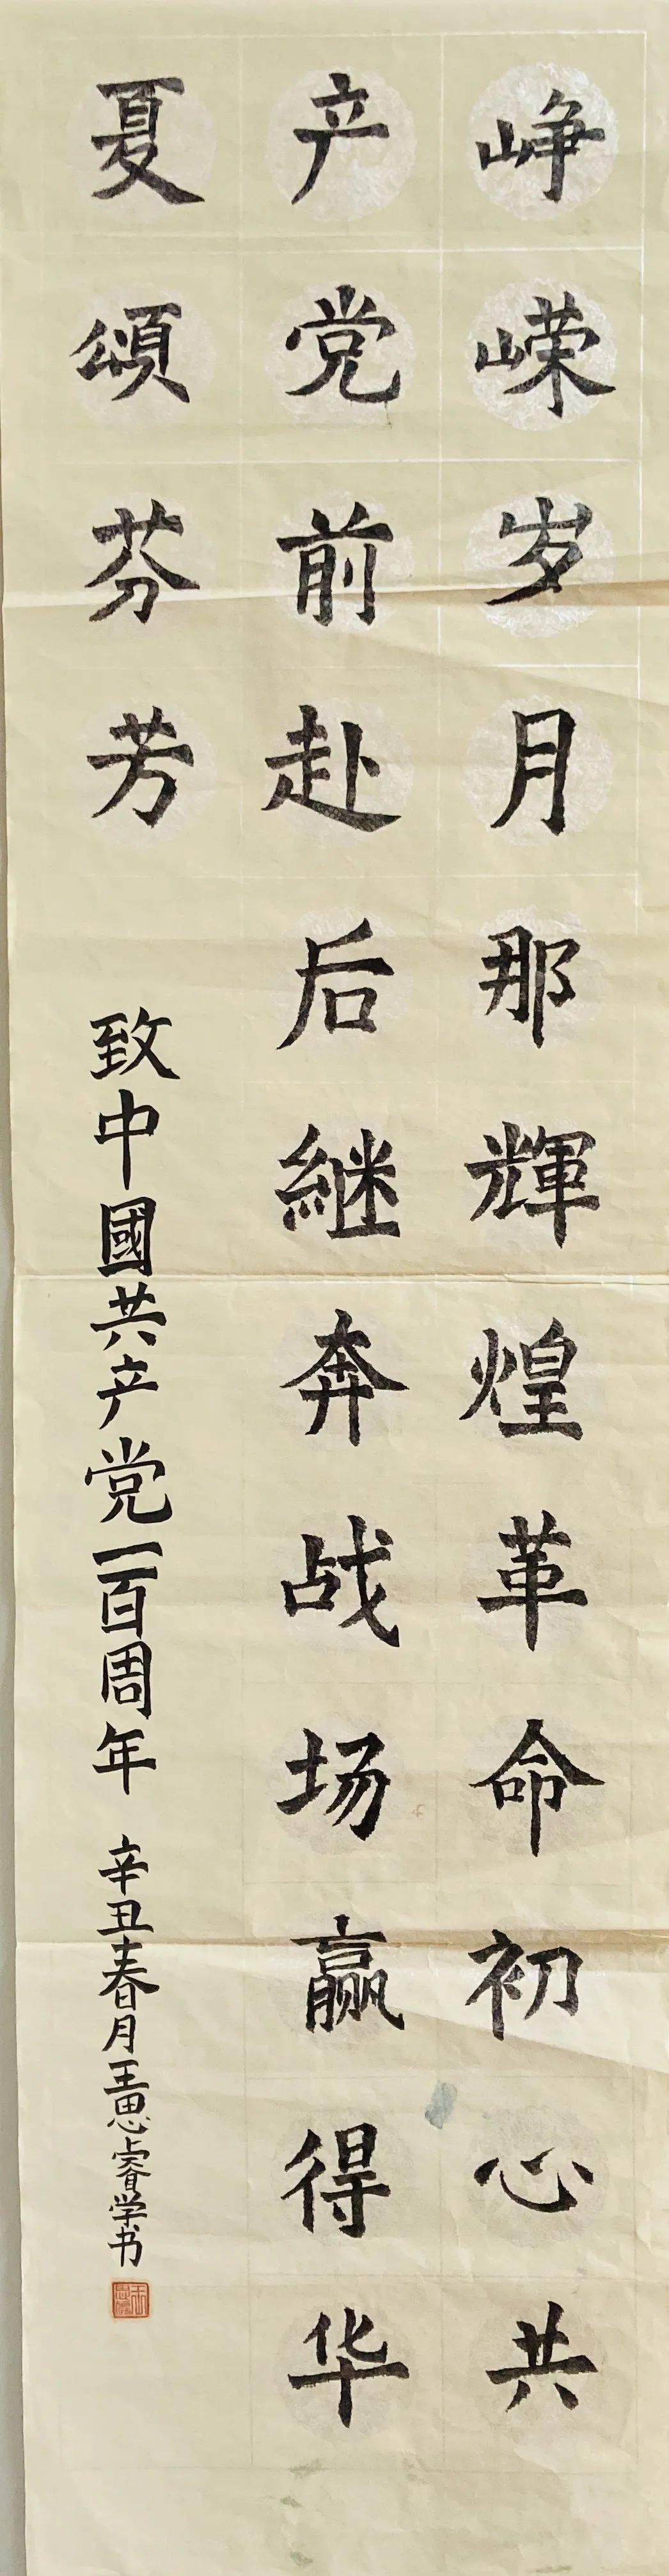 峥嵘岁月那輝煌革命初心共
产党前赴后継奔战场赢得华
夏頌芬芳
致中國共产党一百周年
辛丑春月王思睿学书